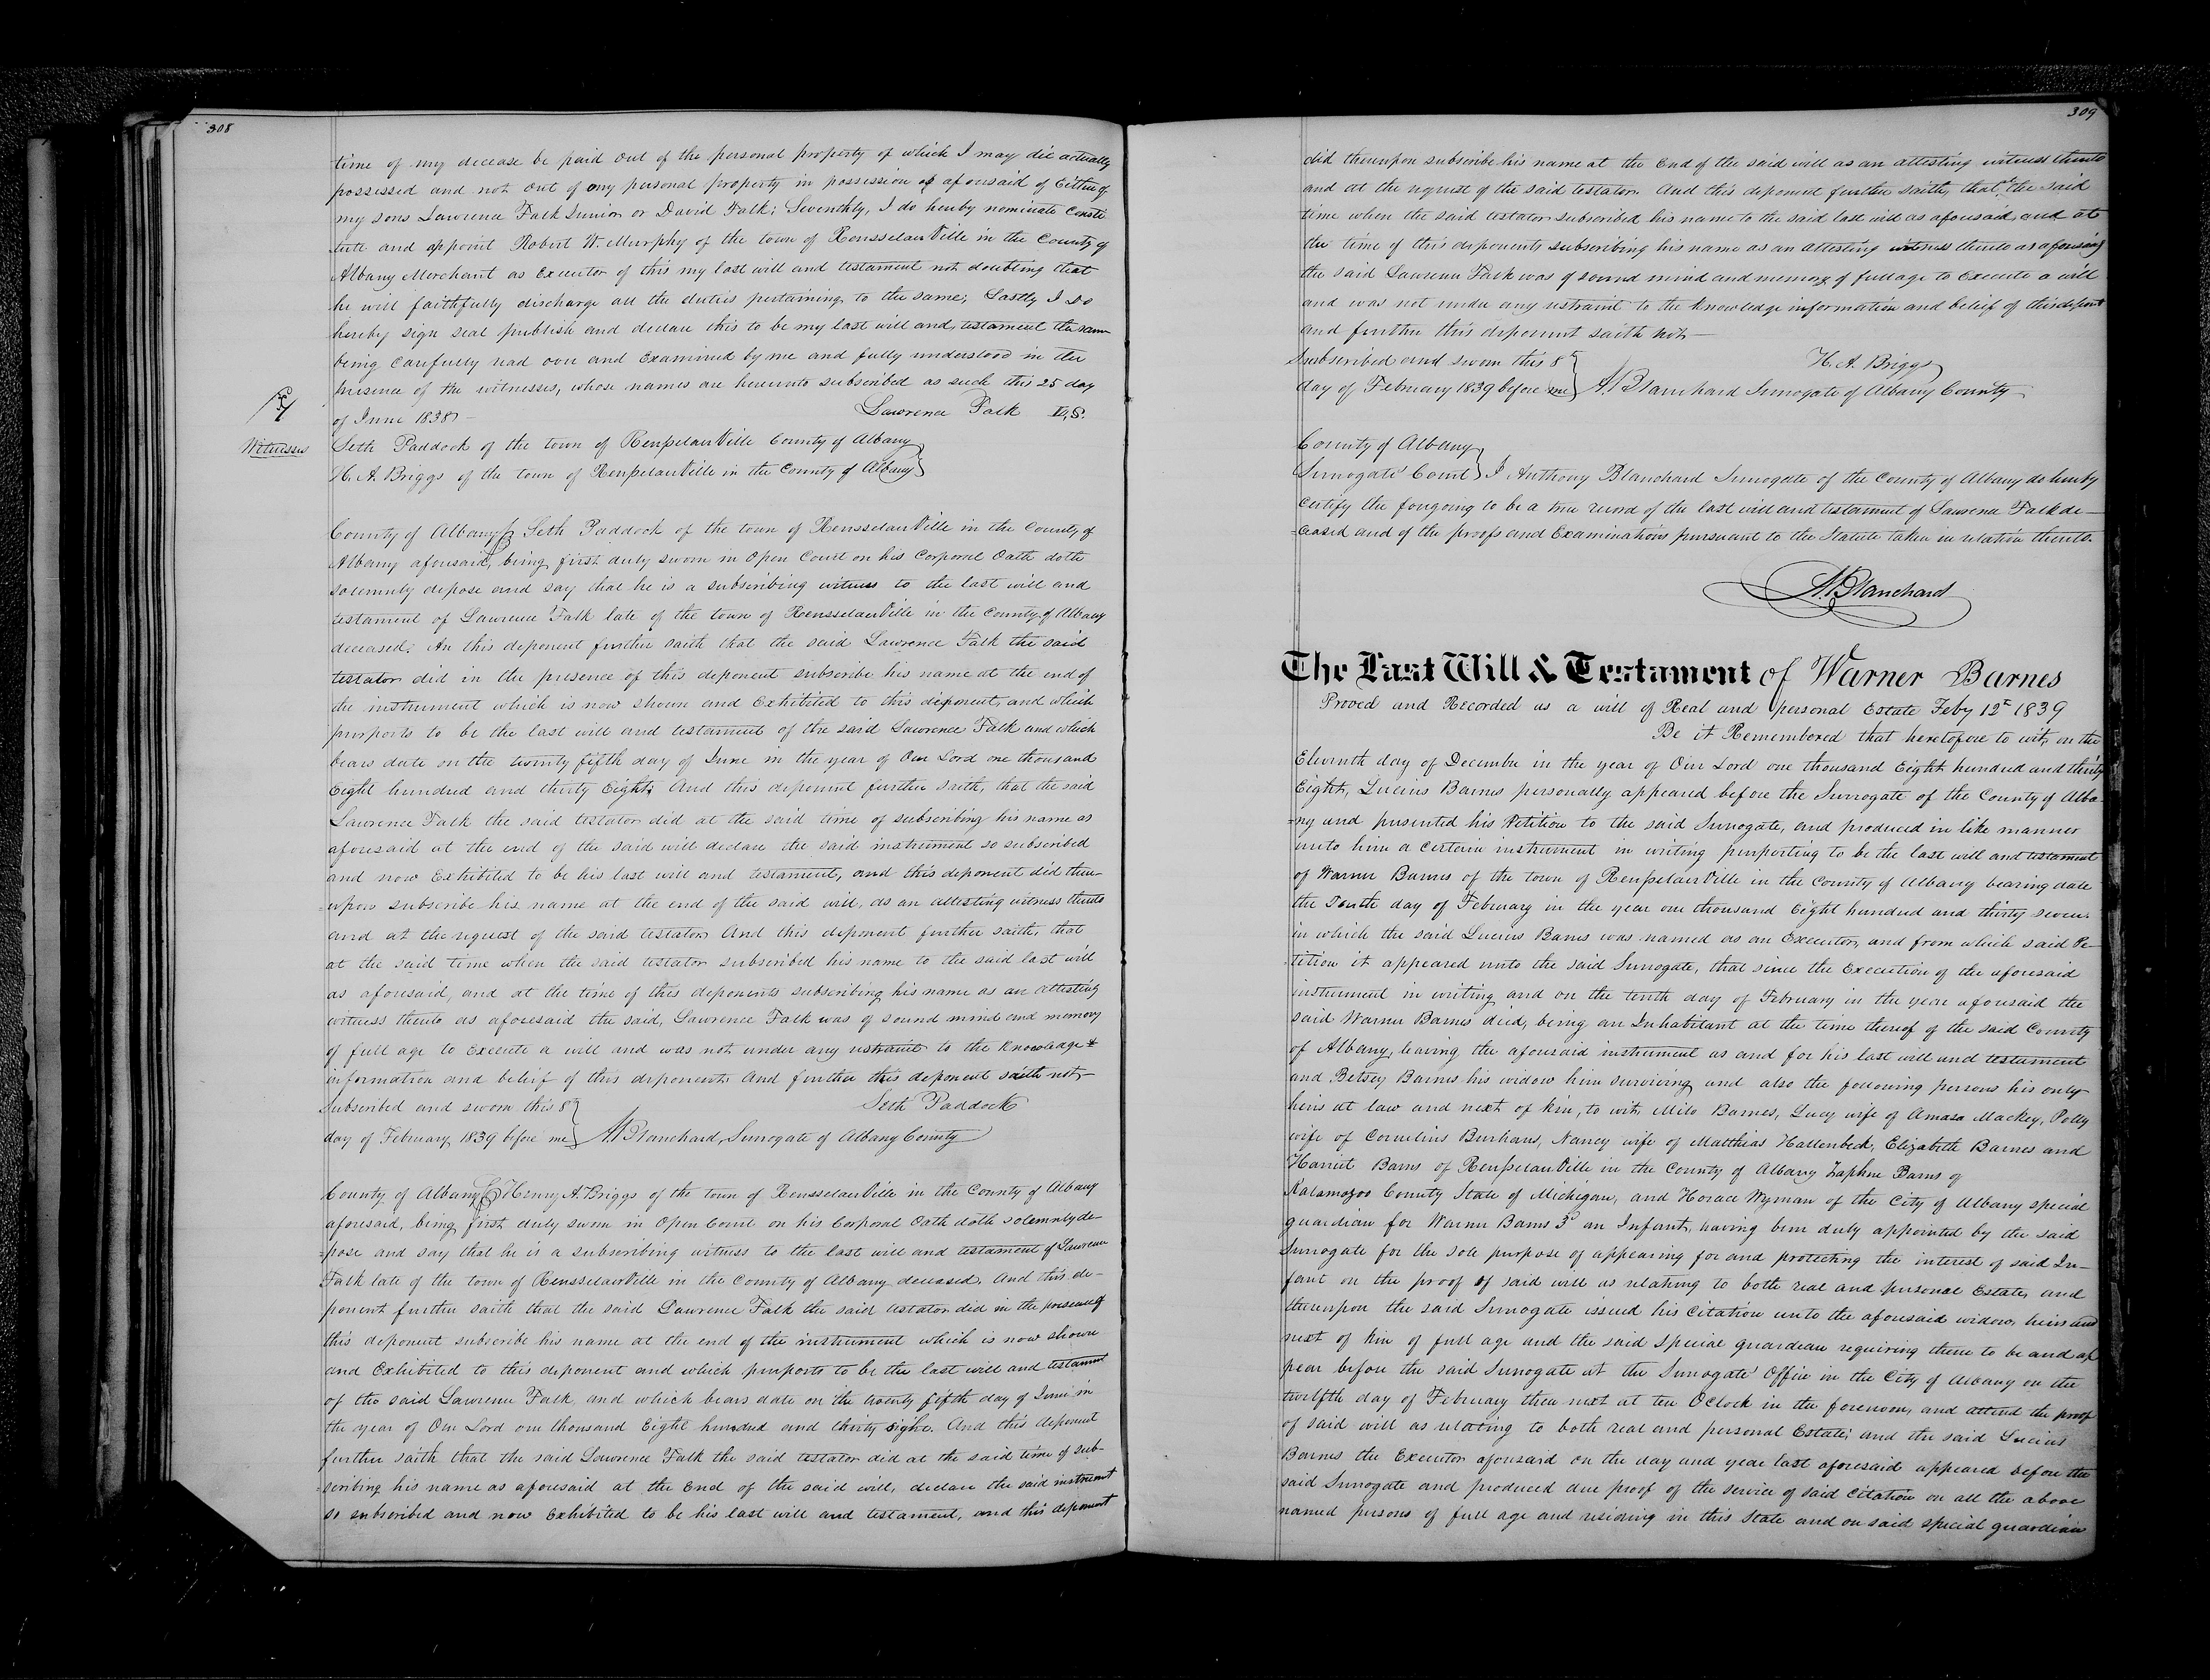 308
time of my decease be paid out of the personal property of which I may die actually
possessed and not out of any personal property in possession of aforesaid of Either of
my sons Lawrence Falk Junior or David Falk; Seventhly, I do hereby nominate consti
tute and appoint Robert W. Murphy of the town of RensselaerVille in the County of
Albany Merchant as Executor of this my last will and testament not doubting that
he will faithfully discharge all the duties pertaining to the same; Lastly I do
hereby sign seal publish and declare this to be my last will and testament the same
being Carefully read over and Examined by me and fully understood in the
presence of the witnesses, whose names are hereunto subscribed as such this 25 day
of June 1838 — Lawrence Falk L.S.
Witnesses
Seth Paddock of the town of RensselaerVille County of Albany
H. A. Briggs of the town of RensselaerVille in the County of Albany
County of Albany Seth Paddock of the town of RensselaerVille in the County of
Albany aforesaid, being first duly sworn in Open Court on his Corporal Oath doth
solemnly depose and say that he is a subscribing witness to the last will and
testament of Lawrence Falk late of the town of RensselaerVille in the County of Albany
deceased. An this deponent further saith that the said Lawrence Falk the said
testator did in the presence of this deponent subscribe his name at the end of
the instrument which is now shown and Exhibited to this deponent, and which
purports to be the last will and testament of the said Lawrence Falk and which
bears date on the twenty fifth day of June in the year of Our Lord one thousand
Eight hundred and thirty Eight; And this deponent further saith, that the said
Lawrence Falk the said testator did at the said time of subscribing his name as
aforesaid at the end of the said will declare the said instrument so subscribed
and now Exhibited to be his last will and testament, and this deponent did there-
=upon subscribe his name at the end of the said will, as an attesting witness thereto
and at the request of the said testator And this deponent further saith, that
at the said time when the said testator subscribed his name to the said last will
as aforesaid, and at the time of this deponents subscribing his name as an attesting
witness thereto as aforesaid the said, Lawrence Falk was of sound mind and memory
of full age to Execute a will and was not under any restraint to the knowledge &
information and belief of this deponent. And further this deponent saith not—
Subscribed and sworn this 8 Seth Paddock
day of February 1839 before me A. Blanchard, Surrogate of Albany County
County of Albany Henry A. Briggs of the town of RensselaerVille in the County of Albany
aforesaid, being first duly sworn in Open Court on his Corporal Oath doth solemnly de-
=pose and say that he is a subscribing witness to the last will and testament of Lawrence
Falk late of the town of RensselaerVille in the County of Albany deceased. And this de-
ponent further saith that the said Lawrence Falk the said testator did in the presence of
this deponent subscribe his name at the end of the instrument which is now shown
and Exhibited to this deponent and which purports to be the last will and testament
of the said Lawrence Falk, and which bears date on the twenty fifth day of June in
the year of Our Lord one thousand Eight hundred and thirty Eight. And this deponent
further saith that the said Lawrence Falk the said testator did at the said time of sub-
=scribing his name as aforesaid at the End of the said will, declare the said instrument
so subscribed and now Exhibited to be his last will and testament, and this deponent
309
did thereupon subscribe his name at the End of the said will as an attesting witness thereto
and at the request of the said testator. And this deponent further saith, that at the said
time when the said testator subscribed his name to the said last will as aforesaid, and at
the time of this deponents subscribing his name as an attesting witness thereto as aforesaid
the said Lawrence Falk was of sound mind and memory of full age to Execute a will
and was not under any restraint to the knowledge information and belief of this deponent
and further this deponent saith not—
Subscribed and sworn this 8 H. A. Briggs
day of February 1839 before me A. Blanchard Surrogate of Albany County
County of Albany
Surrogate' Court I Anthony Blanchard Surrogate of the County of Albany do hereby
certify the forgoing to be a true record of the last will and testament of Lawrence Falk de—
=ceased and of the proofs and Examinations pursuant to the Statute taken in relation thereto.
A. Blanchard
The Last Will & Testament of Warner Barnes
Proved and Recorded as a will of Real and personal Estate Feby 12th 1839
Be it Remembered that heretofore to wit, on the
Eleventh day of December in the year of Our Lord one thousand Eight hundred and thirty
Eight, Lucius Barnes personally appeared before the Surrogate of the County of Alba-
=ny and presented his Petition to the said Surrogate, and produced in like manner
unto him a certain instrument in writing purporting to be the last will and testament
of Warner Barnes of the town of RensselaerVille in the County of Albany bearing date
the Tenth day of February in the year one thousand Eight hundred and thirty seven
in which the said Lucius Barnes was named as an Executor, and from which said Pe-
tition it appeared unto the said Surrogate, that since the Execution of the aforesaid
instrument in writing and on the tenth day of February in the year aforesaid the
said Warner Barnes died, being an Inhabitant at the time thereof of the said County
of Albany, leaving the aforesaid instrument as and for his last will and testament
and Betsey Barnes his widow him surviving and also the following persons his only
heirs at law and next of kin, to wit, Milo Barnes, Lucy wife of Amasa Mackey, Polly
wife of Cornelius Burhans, Nancy wife of Matthias Hallenbeck, Elizabeth Barnes and
Harriet Barns of RensselaerVille in the County of Albany Zaphne Barns of
Kalamazoo County State of Michigan, and Horace Wyman of the City of Albany special
guardian for Warner Barns 3d an Infant, having been duly appointed by the said
Surrogate for the sole purpose of appearing for and protecting the interest of said In-
fant on the proof of said will as relating to both real and personal Estate, and
thereupon the said Surrogate issued his Citation unto the aforesaid widow, heirs and
next of kin of full age and the said special guardian requiring them to be and ap
pear before the said Surrogate at the Surrogate' Office in the City of Albany on the
twelfth day of February then next at ten OClock in the forenoon, and attend the proof
of said will as relating to both real and personal Estate; and the said Lucius
Barnes the Executor aforesaid on the day and year last aforesaid appeared before the
said Surrogate and produced due proof of the service of said Citation on all the above
named persons of full age and residing in this State and on said special guardian